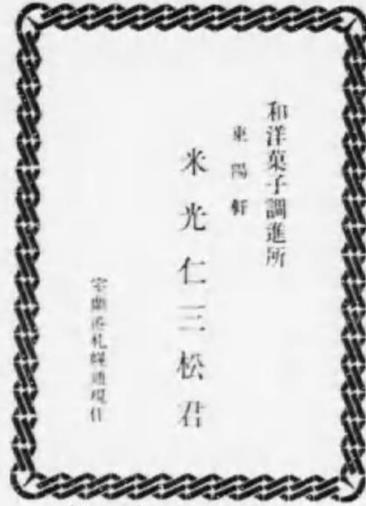 和洋菓子調進所
東陽軒
米光仁三松君
室蘭港札幌通現住